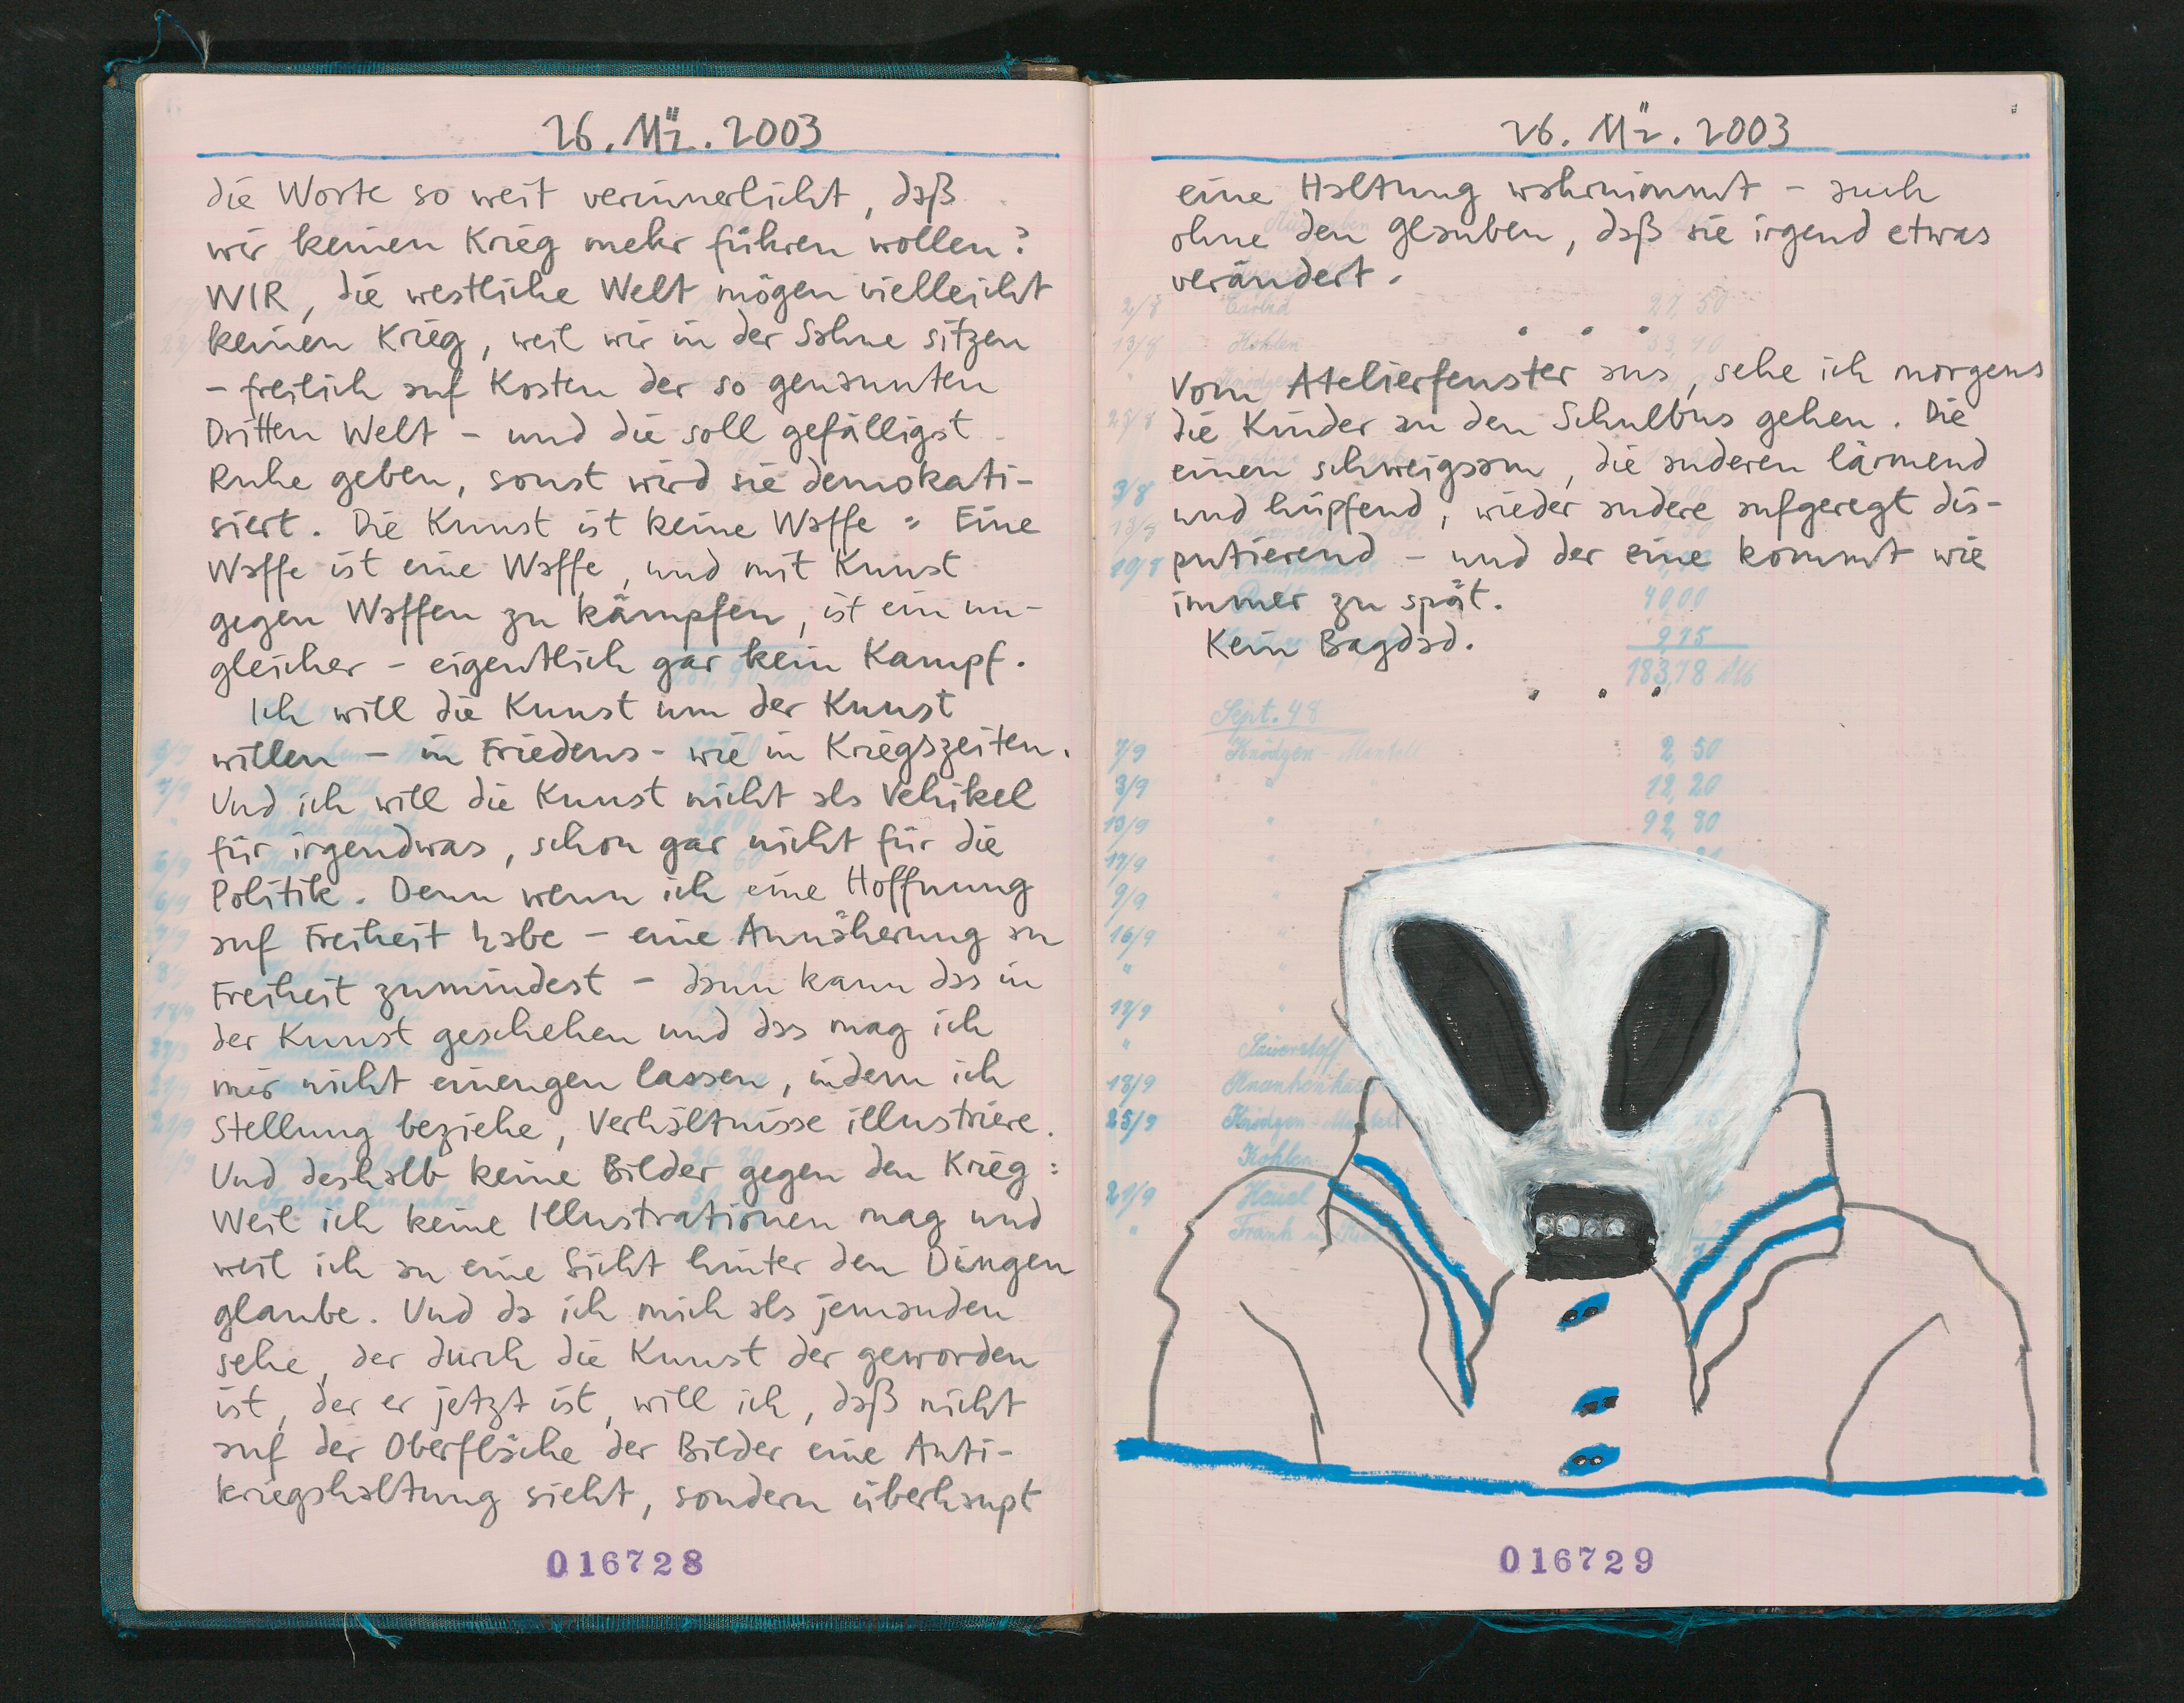 26. Mä. 2003
die Worte so weit verinnerlicht, daß
wir keinen Krieg mehr führen wollen?
WIR, die westliche Welt mögen vielleicht
keinen Krieg, weil wir in der Sahne sitzen
- freilich auf Kosten der so genannten
Dritten Welt - und die soll gefälligst
Ruhe geben, sonst wird sie demokati-
siert. Die Kunst ist keine Waffe = Eine
Waffe ist eine Waffe, und mit Kunst
gegen Waffen zu kämpfen, ist ein un-
gleicher - eigentlich gar kein Kampf.
Ich will die Kunst um der Kunst
willen - in Friedens- wie in Kriegszeiten.
Und ich will die Kunst nicht als Vehikel
für irgendwas, schon gar nicht für die
Politik. Denn wenn ich eine Hoffnung
auf Freiheit habe - eine Annäherung an
Freiheit zumindest - dann kann das in
der Kunst geschehen und das mag ich
mir nicht einengen lassen, indem ich
Stellung beziehe, Verhältnisse illustriere.
Und deshalb keine Bilder gegen den Krieg:
Weil ich keine Illustrationen mag und
weil ich an eine Sicht hinter den Dingen
glaube. Und da ich mich als jemanden
sehe, der durch die Kunst der geworden
ist, der er jetzt ist, will ich, daß nicht
auf der Oberfläche der Bilder eine Anti-
kriegshaltung sieht, sondern überhaupt
016728
26. Mä. 2003
eine Haltung wahrnimmt - auch
ohne den Glauben, daß sie irgend etwas
verändert.
. . .
Vom Atelierfenster aus, sehe ich morgens
die Kinder an den Schulbus gehen. Die
einen schweigsam, die anderen lärmend
und hüpfend, wieder andere aufgeregt dis-
putierend - und der eine kommt wie
immer zu spät.
Kein Bagdad.
. . .
2/8 Carbid 27,50
13/8 Kohlen
25/8
3/8
40,00
9,75
183,78
Sept. 48
7/9 Knödgen - Mantell 2,50
3/9 12,20
13/9 92,80
17/9
9/9
16/9
19/9
Sauerstoff
18/9
25/9
Kohlen
21/9
016729